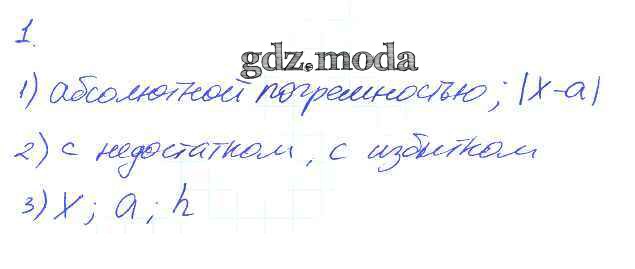 1.
gdz.moda
1) абсолютной погрешностью; |x-a|
2) с недостатком, с избытком
3) x; a; h